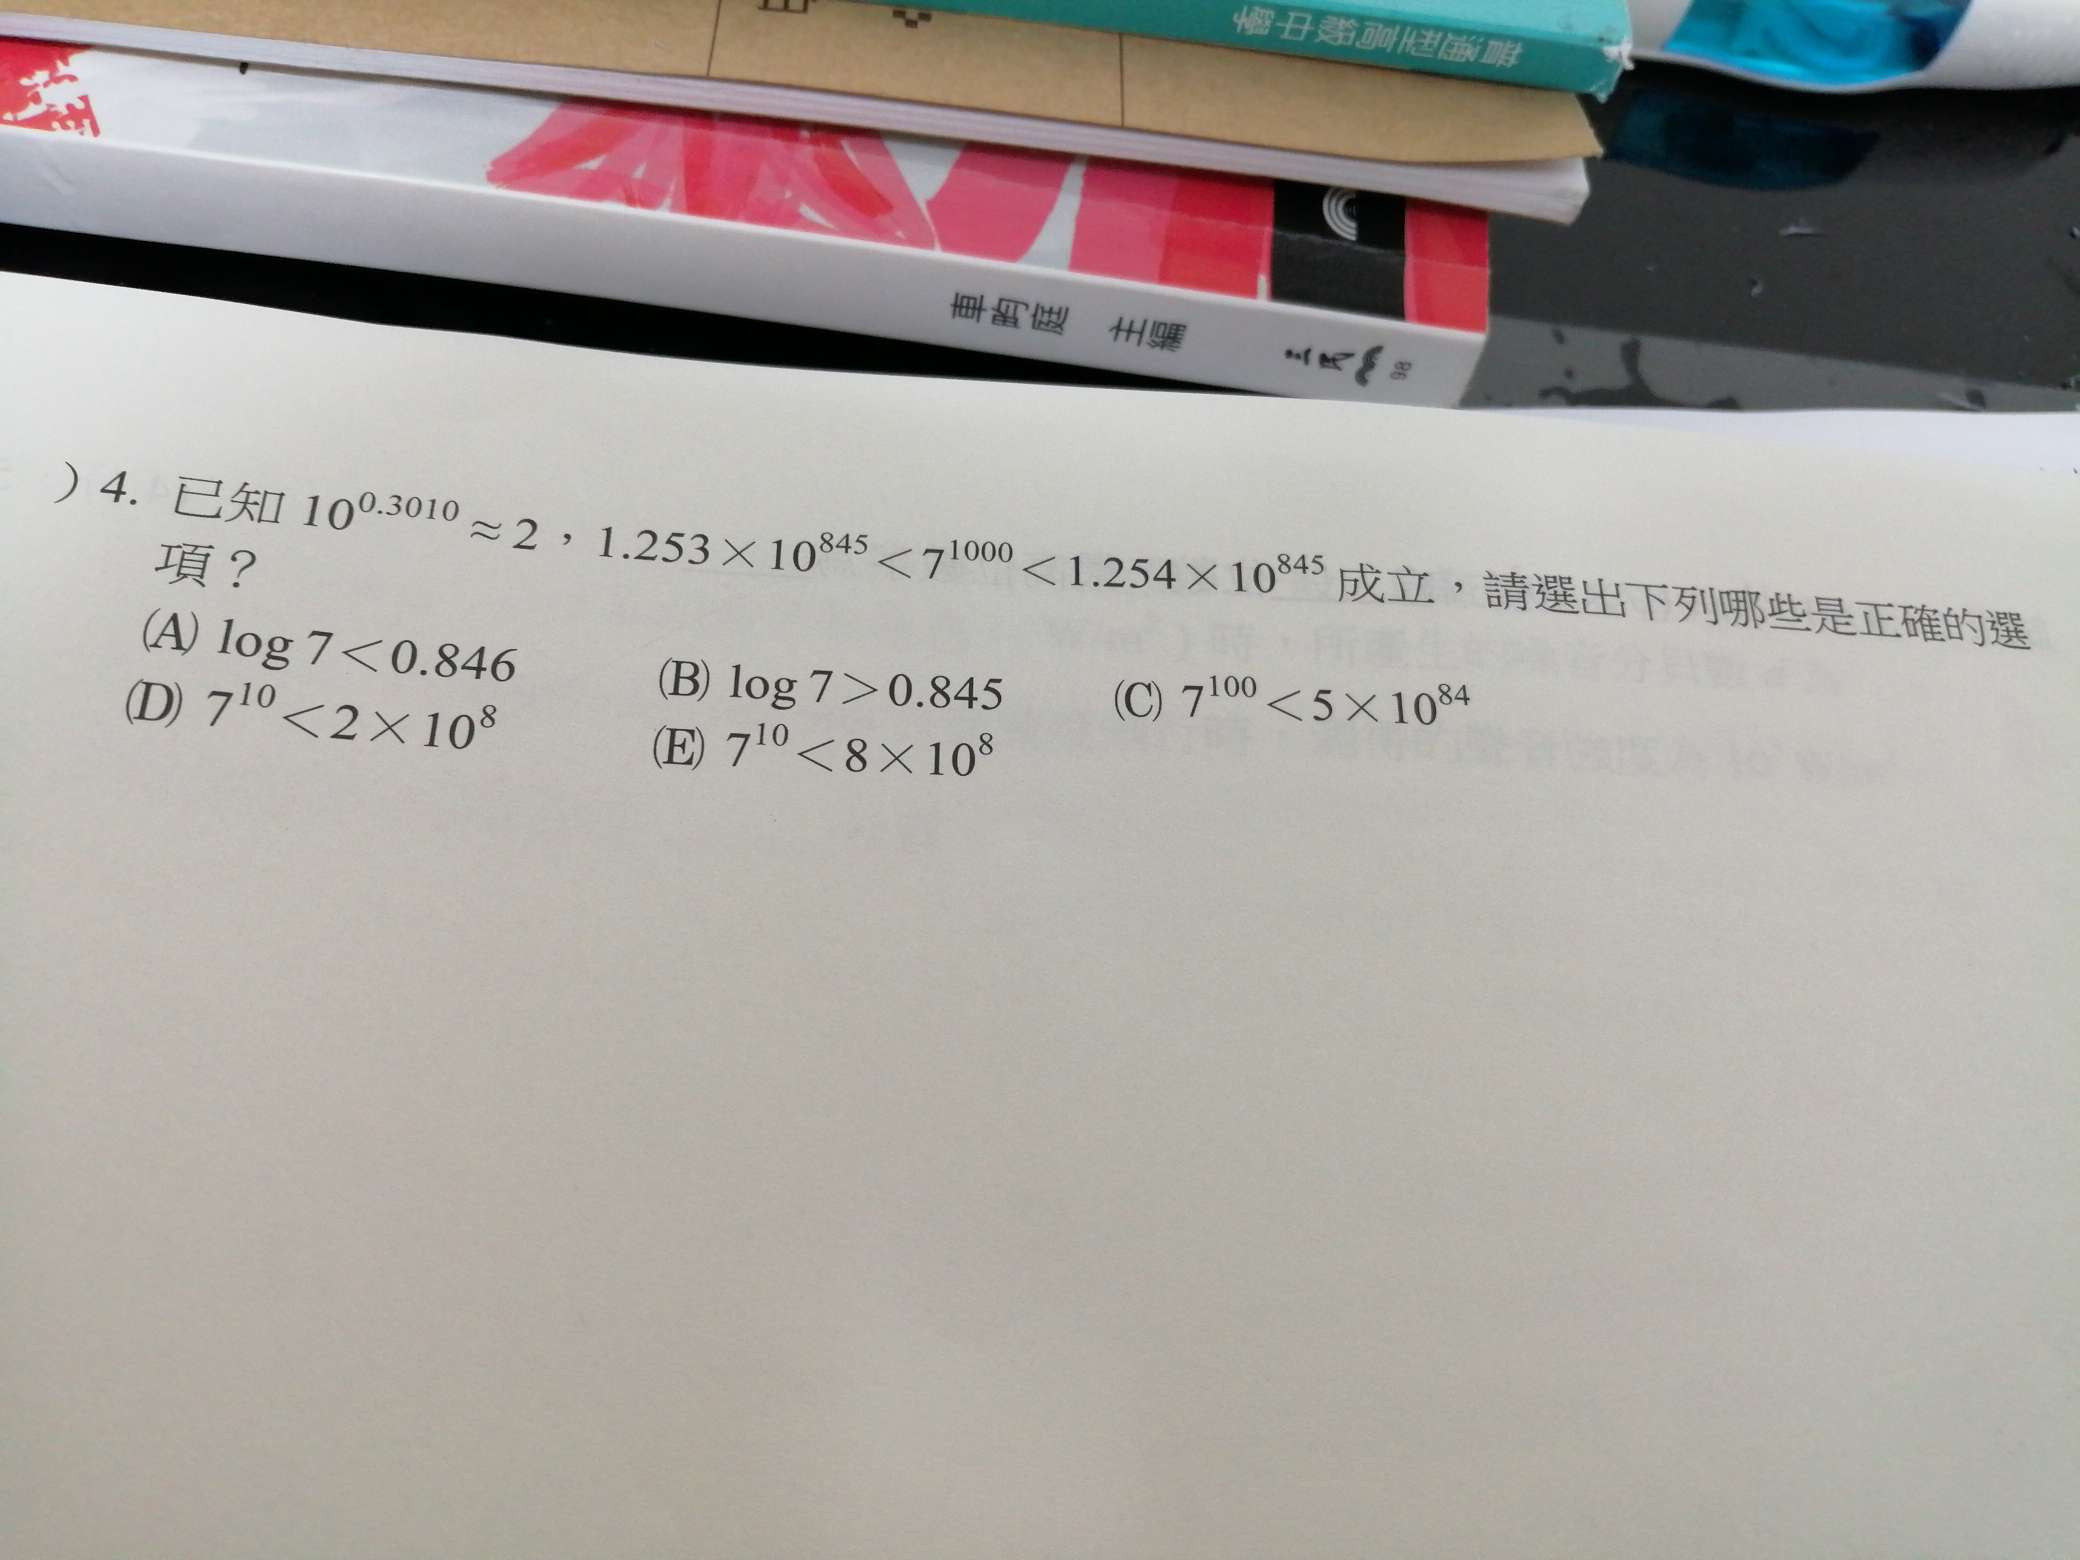 普通型高級中學
車畇庭 主編
三民 98
)4. 已知 10^0.3010≈2,1.253×10^845<7^1000<1.254×10^845 成立,請選出下列哪些是正確的選
項?
(A) log 7<0.846 (B) log 7>0.845 (C) 7^100<5×10^84
(D) 7^10<2×10^8 (E) 7^10<8×10^8